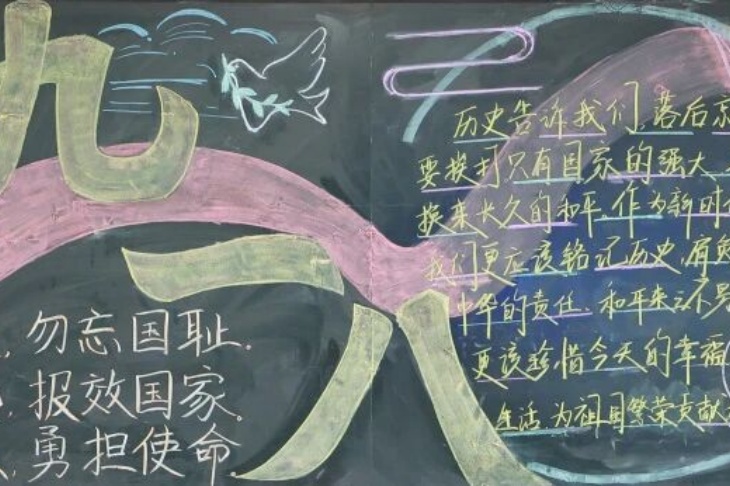 九一八
勿忘国耻.
报效国家。
勇担使命.
历史告诉我们,落后
要挨打只有国家的强大
换来长久的和平,作为新时
我们更应该铭记历史,肩负
中华的责任.和平来之不易
更该珍惜今天的幸福
生活,为祖国繁荣贡献